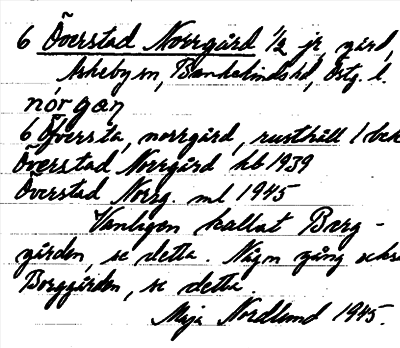 6 Överstad Norrgård 1/2 jr, gård,
Askeby sn, Bankekinds hd, Östg. l.
nórgaṇ
6 Öfversta, norrgård, rusthåll 1 bek
Överstad Norrgård kb 1939
Överstad Norrg. ml 1945
Vanligen kallat Berg-
gården, se detta. Någon gång också
Borggården, se detta.
Maja Nordlund 1945.